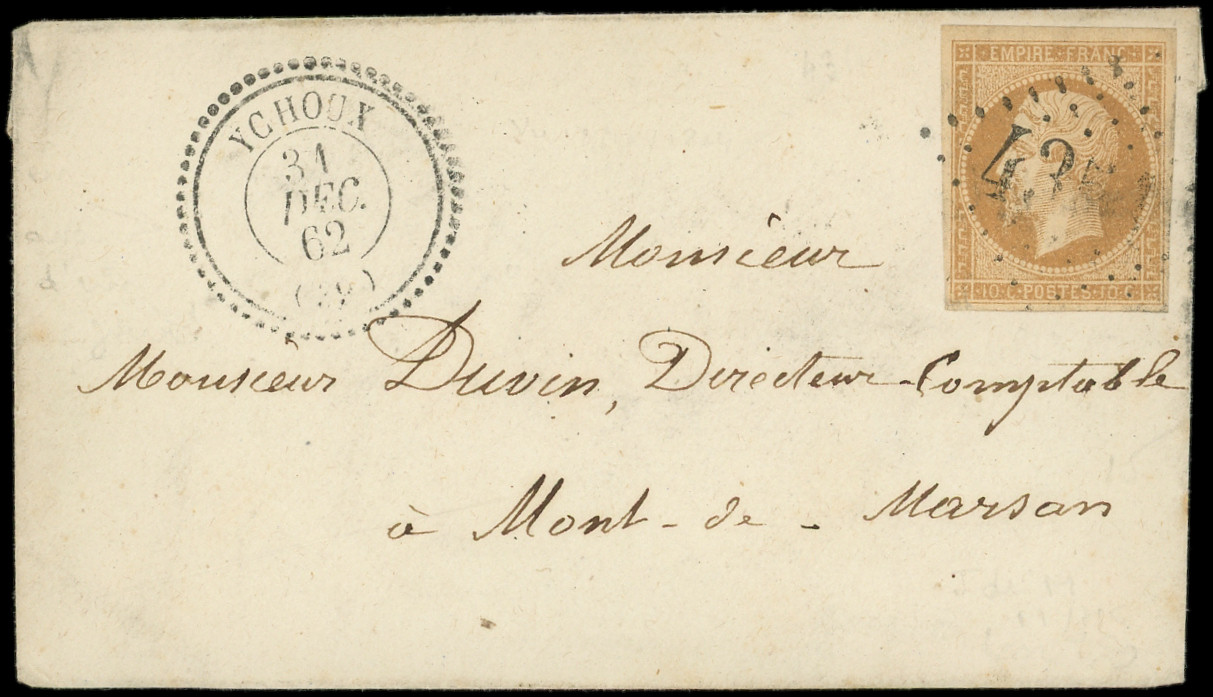 YCHOUX
31
DEC.
62
(39)
EMPIRE · FRANC
10·C·POSTES·10·C
Monsieur
Monsieur Duvin, Directeur-Comptable
à Mont-de-Marsan